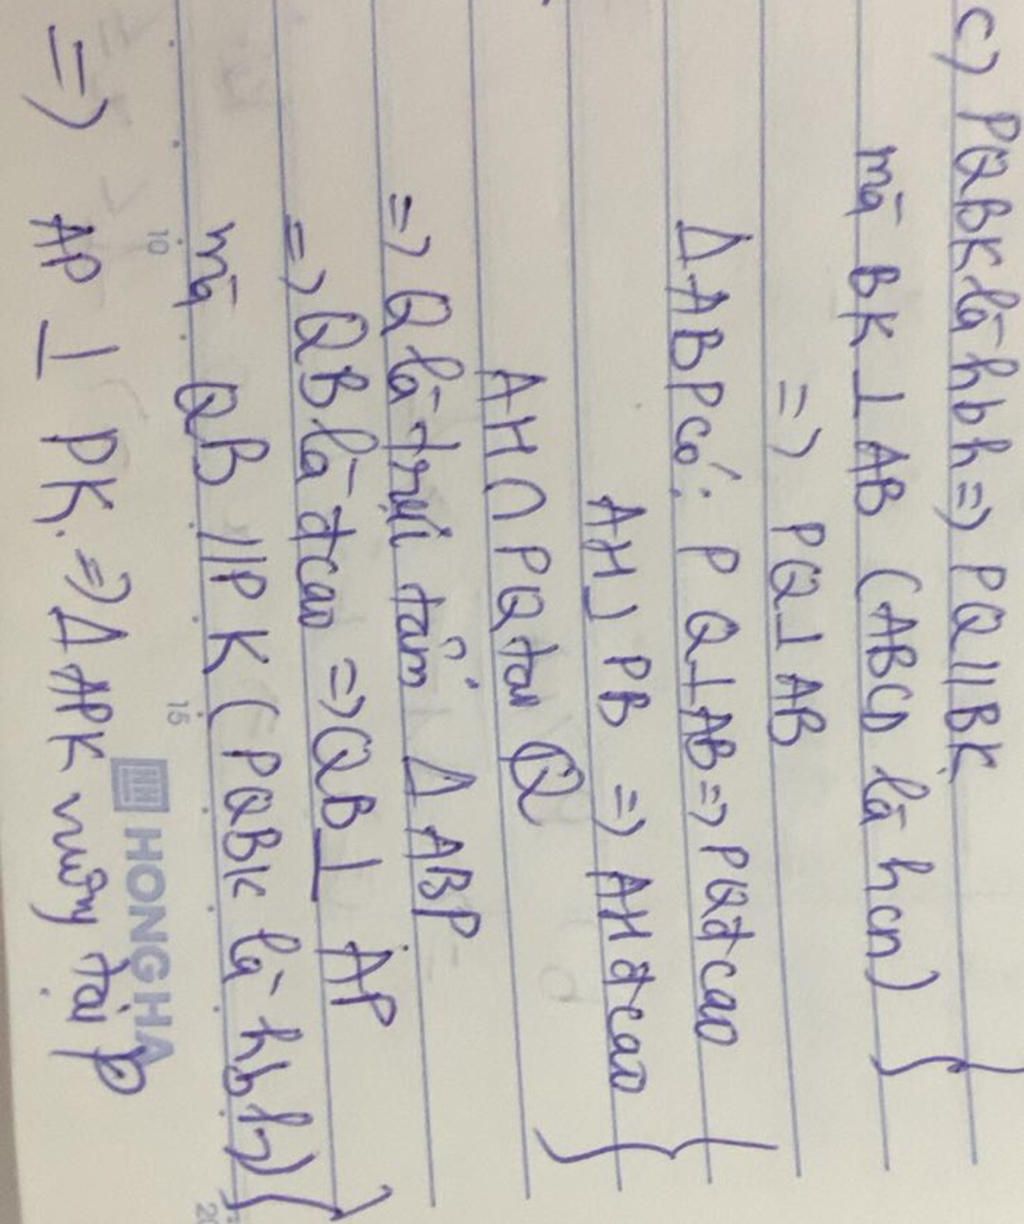 c) PQBK là hbh => PQ // BK
mà BK ⊥ AB (ABCD là hcn)
=> PQ ⊥ AB
Δ ABP có: PQ ⊥ AB => PQ đcao
AH ⊥ PB => AH đcao
AH ∩ PQ tại Q
=> Q là trực tâm Δ ABP
=> QB là đcao => QB ⊥ AP
mà QB // PK (PQBK là hbh)
=> AP ⊥ PK. => Δ APK vuông tại P
10
15
20
HONG HA